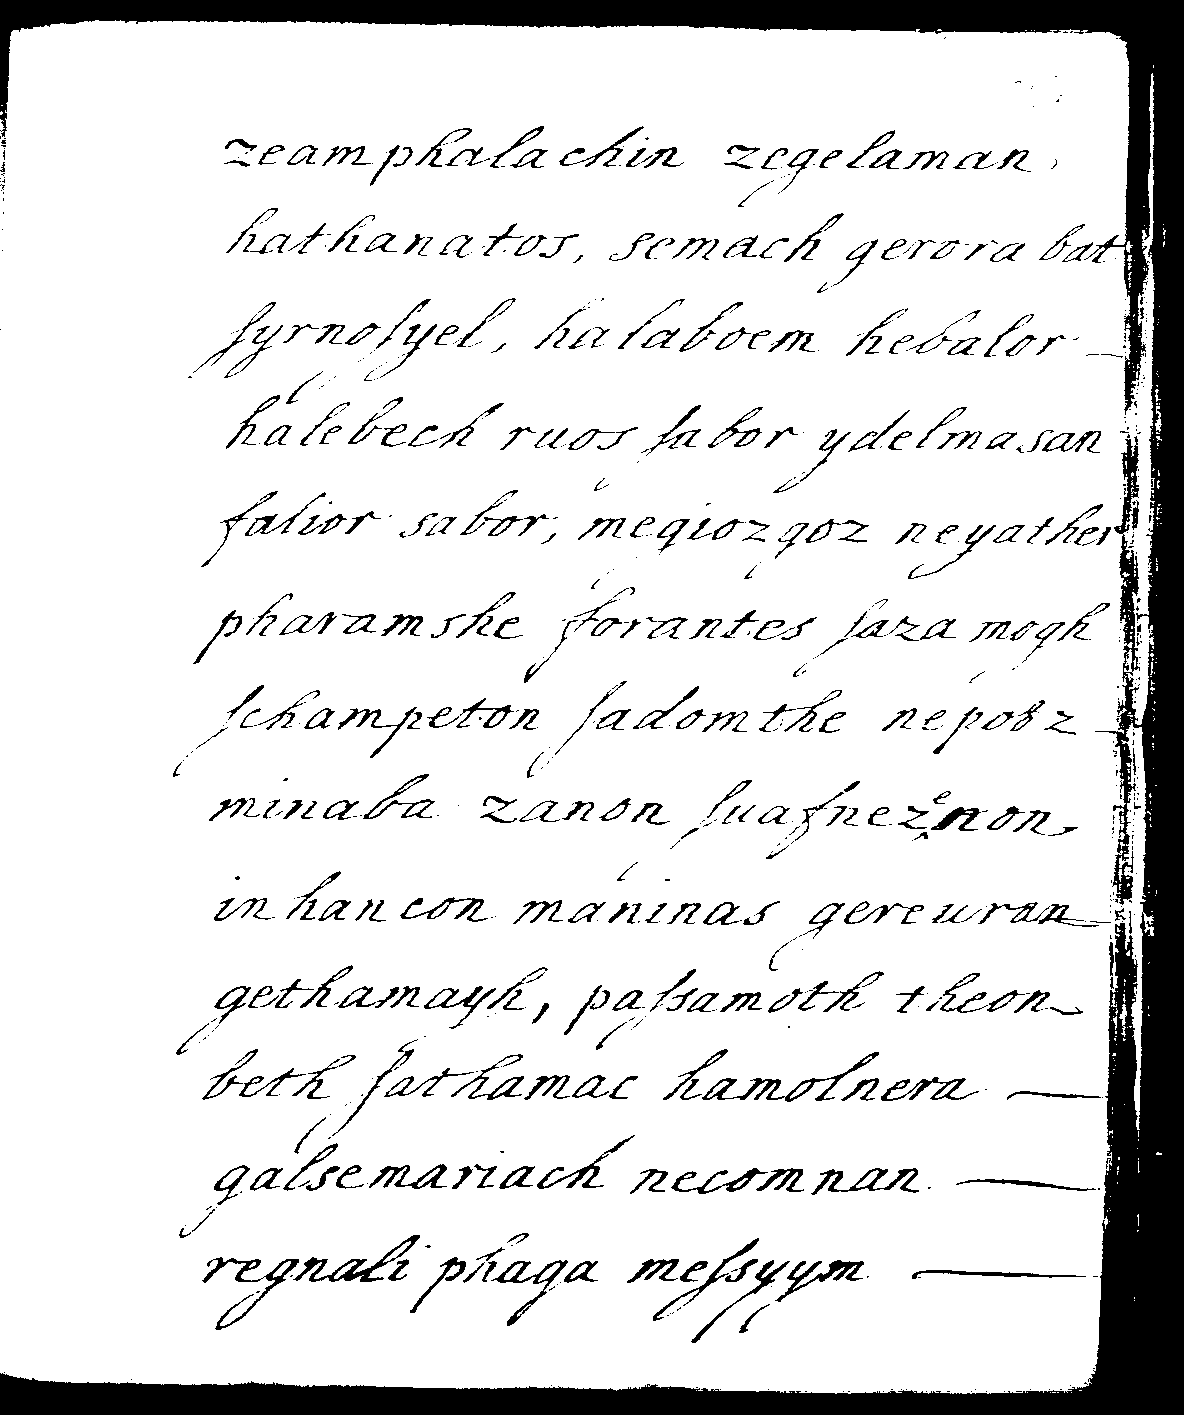 zeamphalachin zegelaman,
hathanatos, semach gerora bat
ſyrnoſyel, halaboem hebalor —
halebech ruos ſabor ydelmasan
falior sabor, meqiozqoz neyather
pharamshe forantes ſaza mogh
ſchampeton ſadomthe nepotz —
minaba zanon ſuafnezenon
inhancon maninas gereuron
gethamayh, paſsamoth theon
beth ſathamac hamolnera —
galsemariach necomnan —
regnali phaga meſsyym —